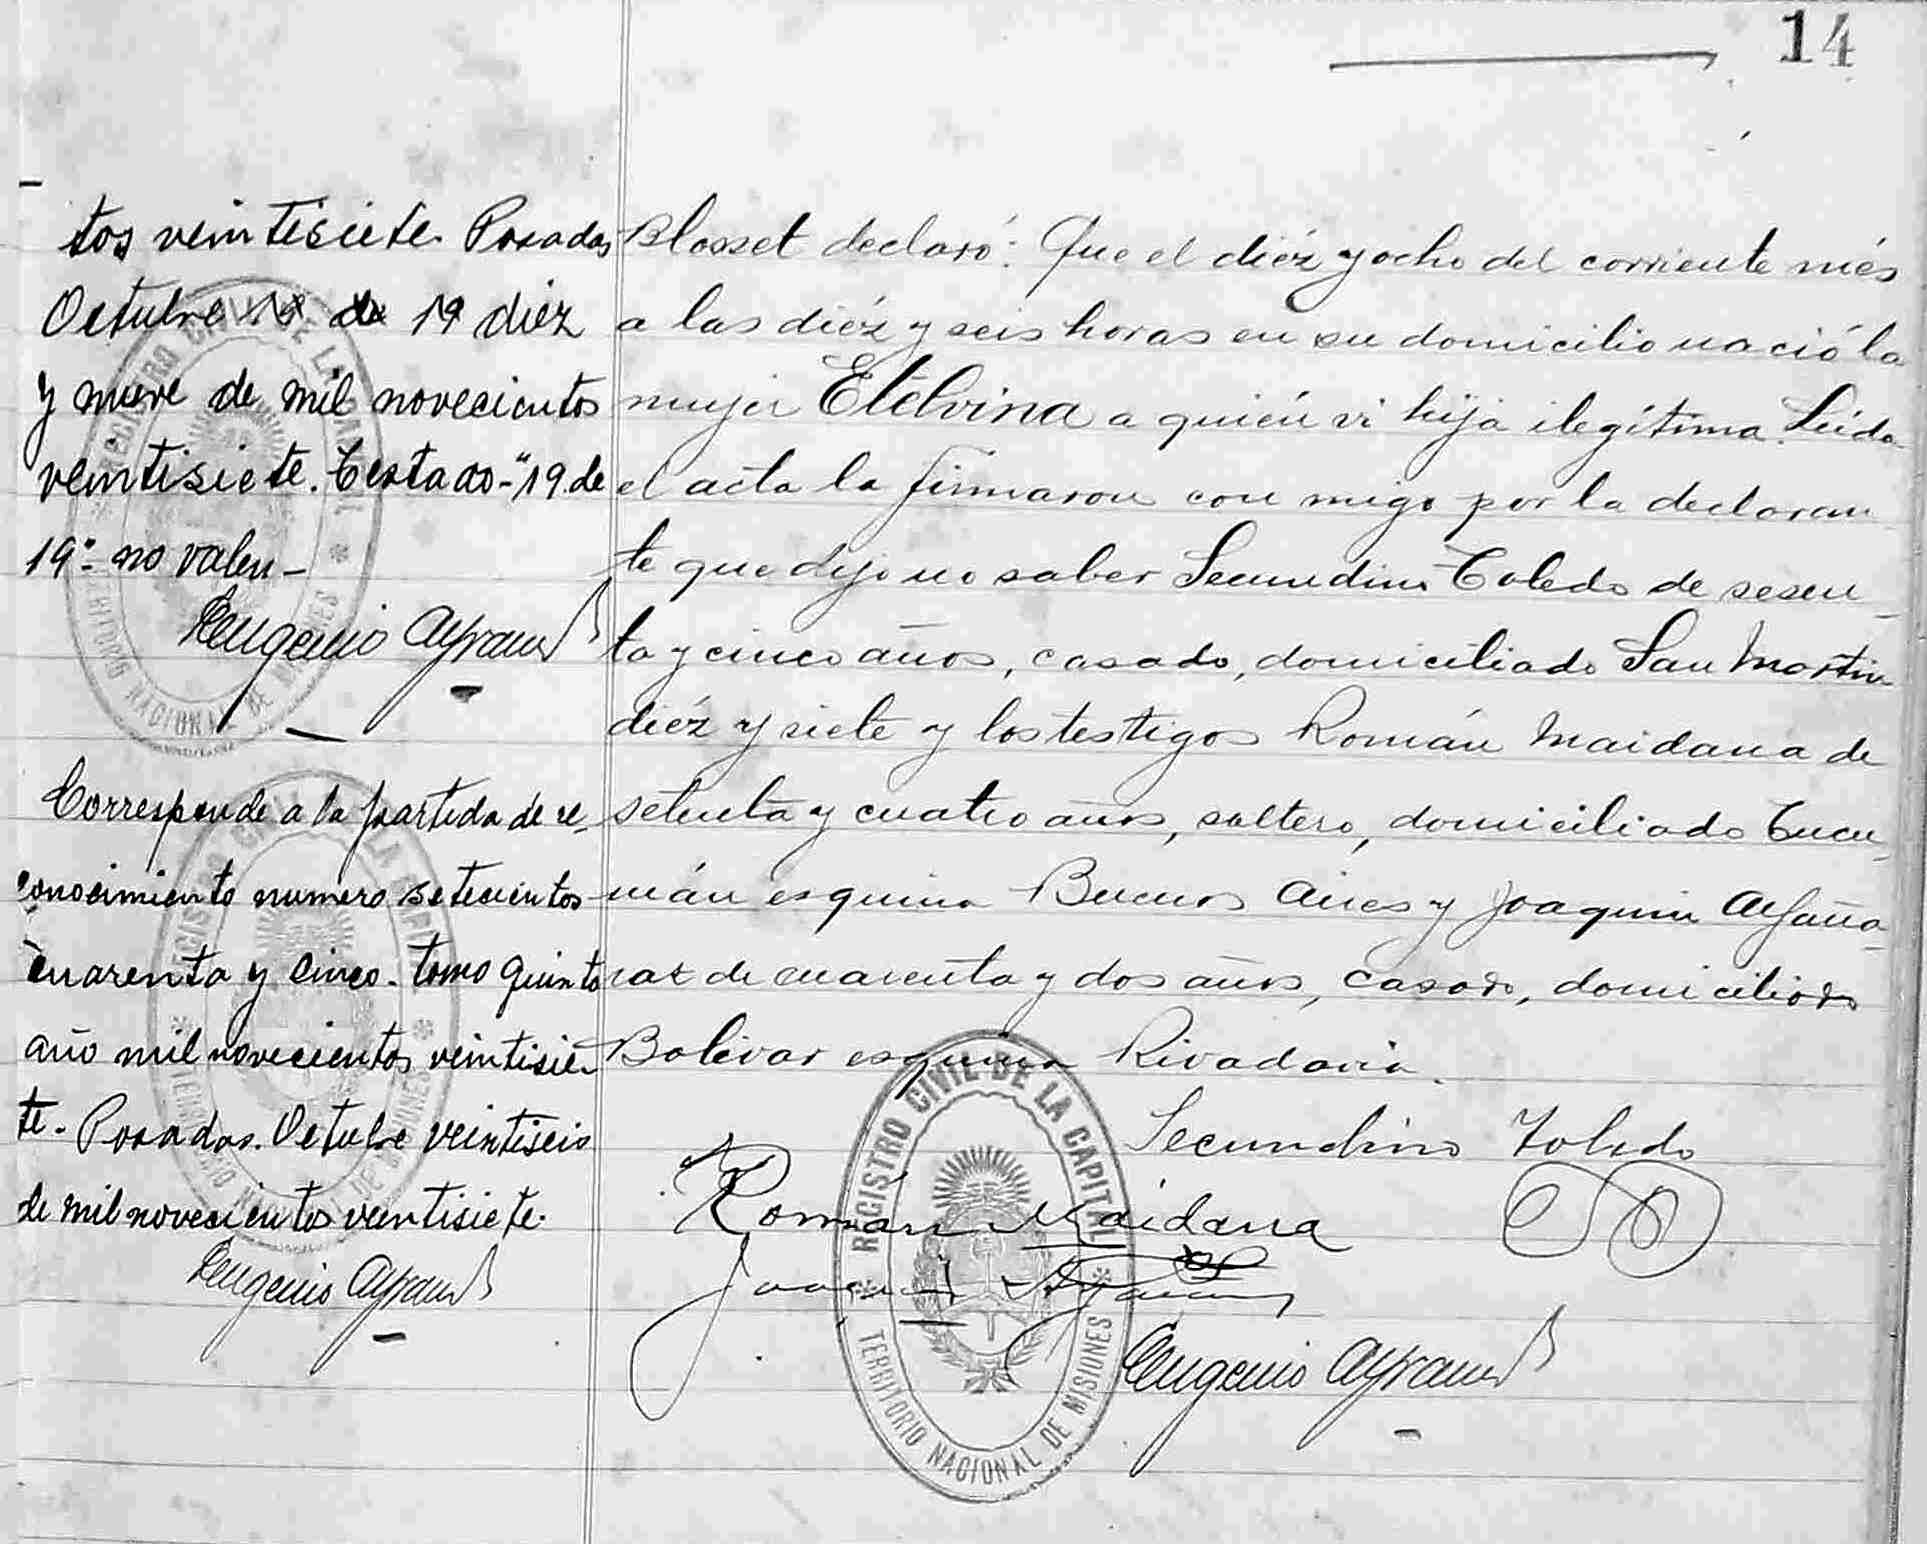 14
tos veintisiete. Posadas
Octubre 19 de 19 diéz
y nueve de mil novecientos
veintisiete. Testado-"19. de
19"- no valen-
Correspende a la partida de re-
conocimiento numero setecientos
cuarenta y cinco. tomo quinto
año mil novecientos veintisie-
te. Posadas. Octubre veintiseis
de mil novecientos veintisiete.
Blosset declaró: Que el diéz y ocho del corriente més
a las diéz y seis horas en su domicilio nació la
mujer Etelvina a quién vi hija ilegítima. Leida
el acta la firmaron con migo por la declaran
te que dijo no saber Secundino Toledo de sesen
ta y cinco años, casado, domiciliado San Martin
diéz y siete y los testigos Román Maidana de
setenta y cuatro años, soltero, domiciliado Tucu
mán esquina Buenos Aires y Joaquin Alfaña
raz de cuarenta y dos años, casado, domiciliado
Bolivar esquina Rivadavia.
Secundino Toledo
Román Maidana
REGISTRO CIVIL DE LA CAPITAL
TERRITORIO NACIONAL DE MISIONES